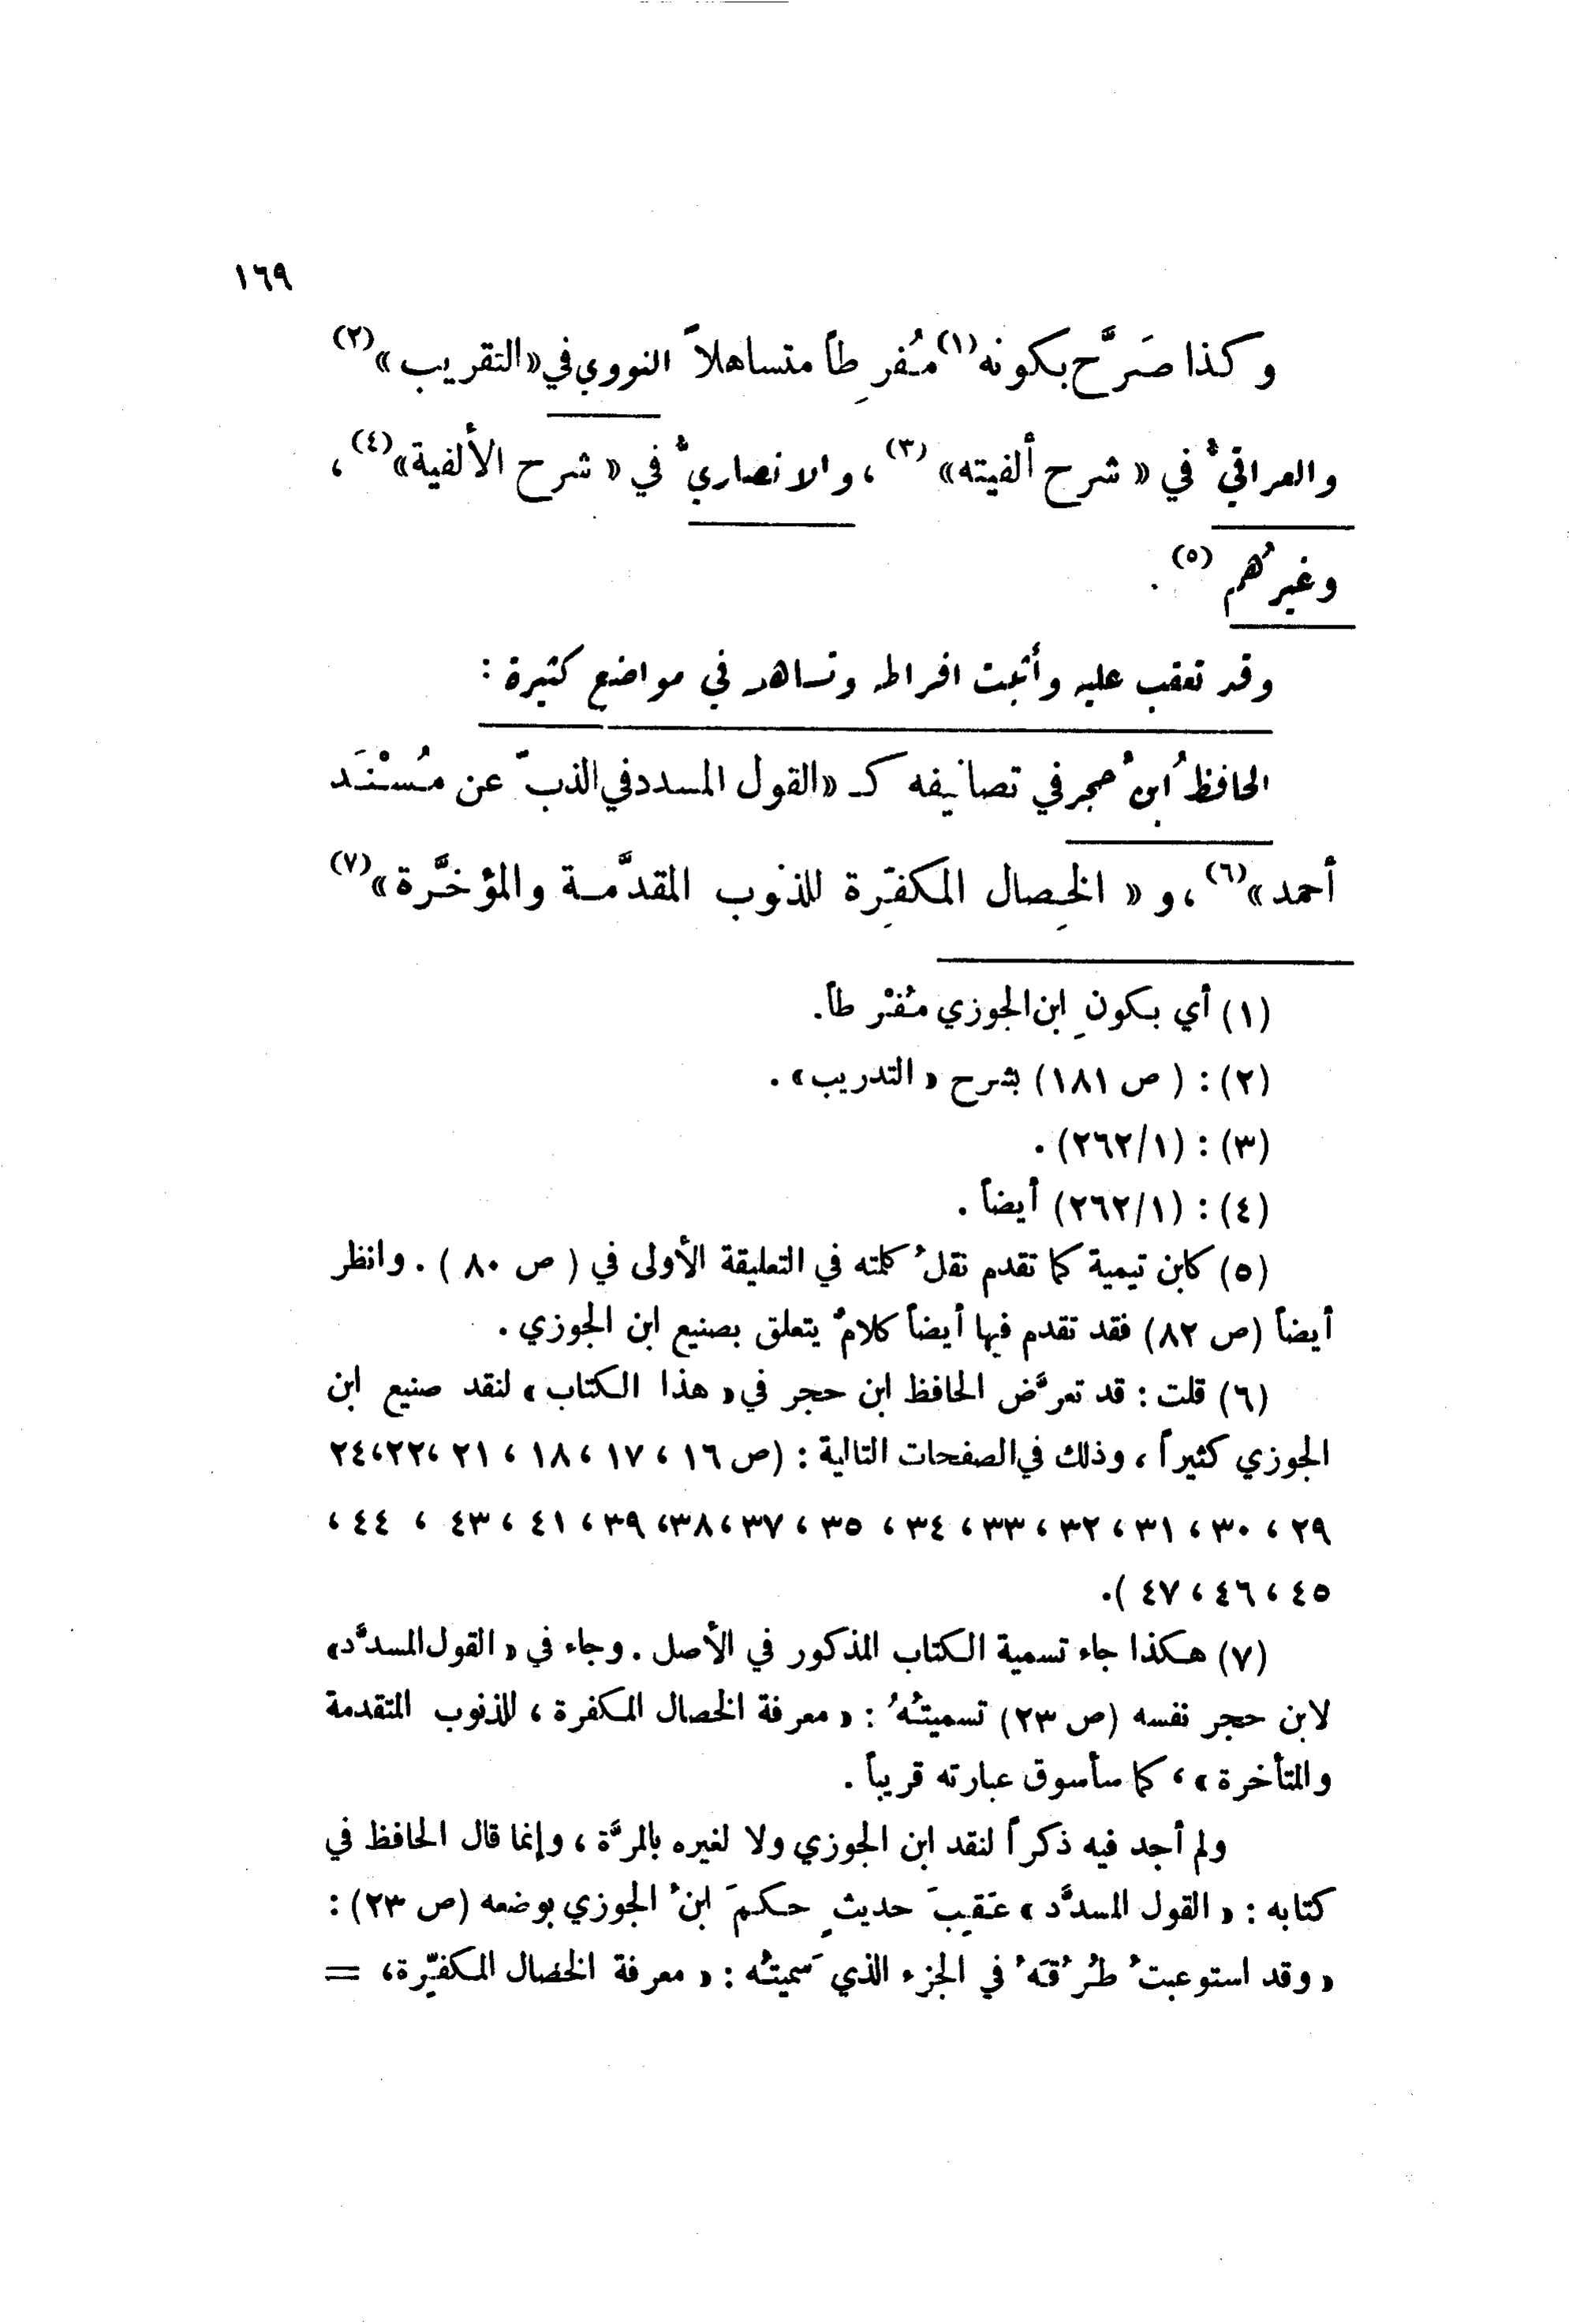 ١٦٩
وكذا صَرَّح بكونه(١) مُفرِطاً متساهلاً النووي في «التقريب»(٢)
والعراقيُّ في « شرح ألفيته» (٣)، والانصاريُّ في « شرح الألفية»(٤)،
وغيرُهم (٥) .
وقد تعقب عليه وأثبت افراطه وتساهله في مواضع كثيرة :
الحافظُ ابنُ حجر في تصانيفه كـ «القول المسدد في الذبّ عن مُسْنَد
أحمد»(٦)، و « الخِصال المكفِّرة للذنوب المقدَّمة والمؤخَّرة»(٧)
(١) أي بكونِ ابن الجوزي مُفْرطاً.
(٢) : ( ص ١٨١) بشرح « التدريب» .
(٣) : (٢٦٢/١) .
(٤) : (٢٦٢/١) أيضاً .
(٥) كابن تيمية كما تقدم نقلُ كلمته في التعليقة الأولى في ( ص ٨٠ ) . وانظر
أيضاً (ص ٨٢) فقد تقدم فيها أيضاً كلامٌ يتعلق بصنيع ابن الجوزي .
(٦) قلت : قد تعرَّض الحافظ ابن حجر في « هذا الكتاب» لنقد صنيع ابن
الجوزي كثيراً ، وذلك في الصفحات التالية : (ص ١٦ ، ١٧ ، ١٨ ، ٢١ ،٢٢،٢٤
٢٩ ، ٣٠ ، ٣١ ، ٣٢ ، ٣٣ ، ٣٤ ، ٣٥ ، ٣٧ ، ٣٨، ٣٩ ، ٤١ ، ٤٣ ، ٤٤ ،
٤٥ ، ٤٦ ، ٤٧ ).
(٧) هكذا جاء تسمية الكتاب المذكور في الأصل . وجاء في « القول المسدَّد»
لابن حجر نفسه (ص ٢٣) تسميتُهُ : « معرفة الخصال المكفرة ، للذنوب المتقدمة
والمتأخرة » ، كما سأسوق عبارته قريباً .
ولم أجد فيه ذكراً لنقد ابن الجوزي ولا لغيره بالمرَّة ، وإنما قال الحافظ في
كتابه : « القول المسدَّد » عَقِبَ حديثٍ حكمَ ابنُ الجوزي بوضعه (ص ٢٣) :
« وقد استوعبتُ طُرُقَهُ في الجزء الذي سَميتُه : « معرفة الخصال المكفِّرة، =